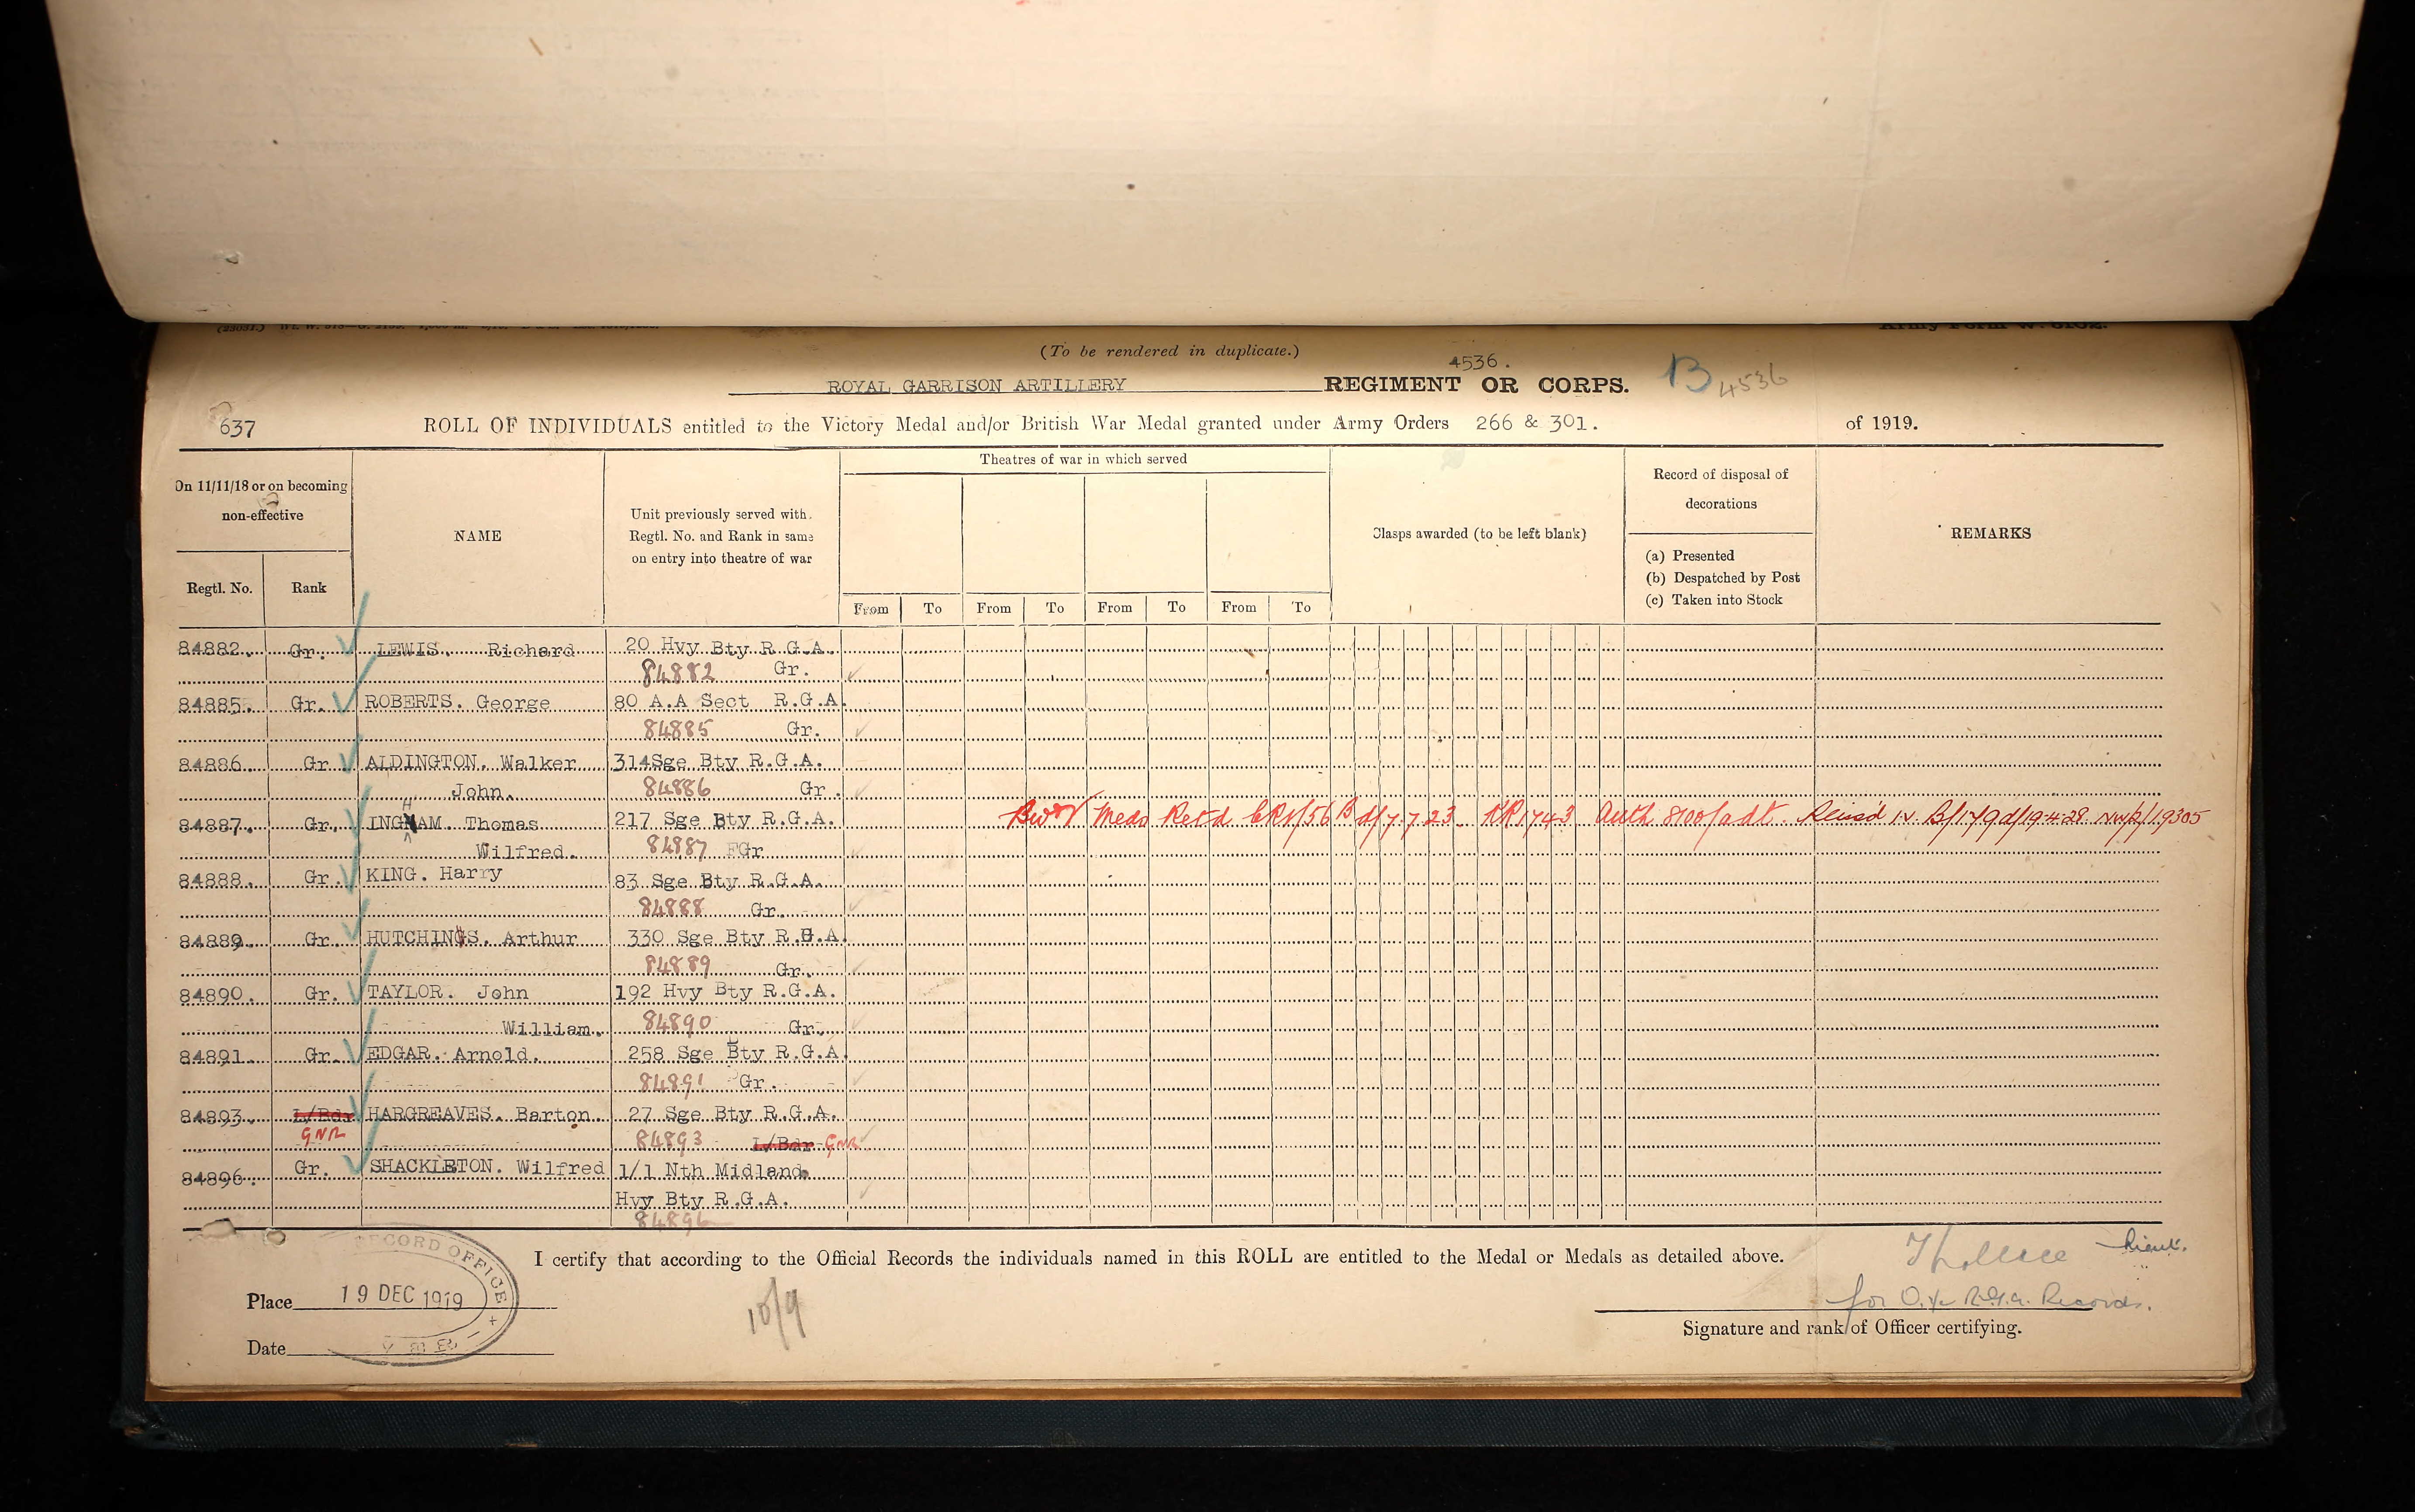 (To be rendered in duplicate.)
4536.
ROYAL GARRISON ARTILLERY REGIMENT OR CORPS. B 4536
637 ROLL OF INDIVIDUALS entitled to the Victory Medal and/or British War Medal granted under Army Orders 266 & 301. of 1919.
On 11/11/18 or on becoming non-effective
Regtl. No. Rank
NAME
Unit previously served with.
Regtl. No. and Rank in same
on entry into theatre of war
Theatres of war in which served
From To From To From To From To
Clasps awarded (to be left blank)
Record of disposal of
decorations
(a) Presented
(b) Despatched by Post
(c) Taken into Stock
REMARKS
84882. Gr. LEWIS. Richard 20 Hvy Bty R.G.A.
84882 Gr.
84885. Gr. ROBERTS. George 80 A.A Sect R.G.A.
84885 Gr.
84886. Gr ALDINGTON. Walker 314Sge Bty R.G.A.
John. 84886 Gr.
84887. Gr. INGHAM. Thomas 217 Sge Bty R.G.A. Meds Retd d/7.7.23 KR 1743 Auth 8100/adt.
Wilfred. 84887 Gr
84888. Gr. KING. Harry 83 Sge Bty R.G.A.
84888 Gr.
84889. Gr. HUTCHINGS. Arthur 330 Sge Bty R.G.A.
84889 Gr.
84890. Gr. TAYLOR. John 192 Hvy Bty R.G.A.
William. 84890 Gr.
84891. Gr. EDGAR. Arnold. 258 Sge Bty R.G.A.
84891 Gr.
84893. L/Bdr HARGREAVES. Barton. 27 Sge Bty R.G.A.
GNR 84893 L/Bdr GNR
84896. Gr. SHACKLETON. Wilfred 1/1 Nth Midland
Hvy Bty R.G.A.
84896
I certify that according to the Official Records the individuals named in this ROLL are entitled to the Medal or Medals as detailed above.
Lieut.
for O. i/c R.G.A. Records.
Signature and rank of Officer certifying.
RECORD OFFICE
Place 19 DEC 1919
Date
10/9